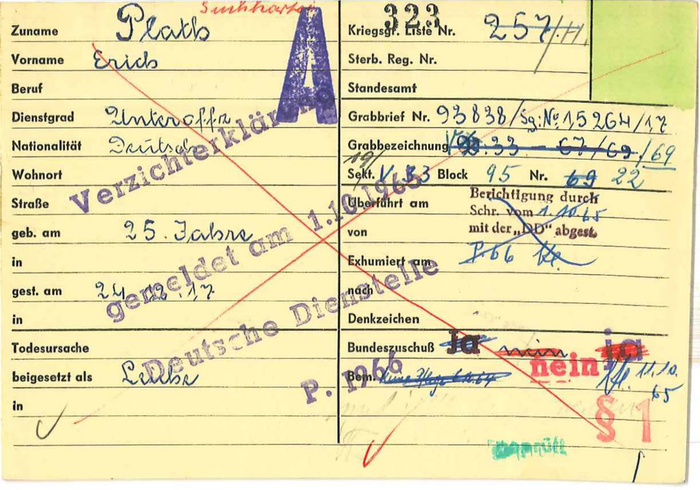 Suchkarten
A
Zuname Plath
Vorname Erich
Beruf
Dienstgrad Unteroffz
Nationalität Deutsch
Wohnort
Straße
geb. am 25. Jahre
in
gest. am 24.12.17
in
Todesursache
beigesetzt als Leiche
in
Verzichterklärung
gemeldet am 1.10.1965
Deutsche Dienststelle
P. 1966
323
Kriegsgr. Liste Nr. 257/II
Sterb. Reg. Nr.
Standesamt
Grabbrief Nr. 93838/Sg:No 15264/17
Grabbezeichnung 33 - 67/69 /69
19/
Sekt. V. B3 Block 95 Nr. 69 22
Berichtigung durch
Überführt am
Schr. vom 1.10.65
von mit der „DD" abgest.
Exhumiert am P.66
nach
Denkzeichen
Bundeszuschuß Ja nein ja
nein
Bem. 11.10.
65
§ 1